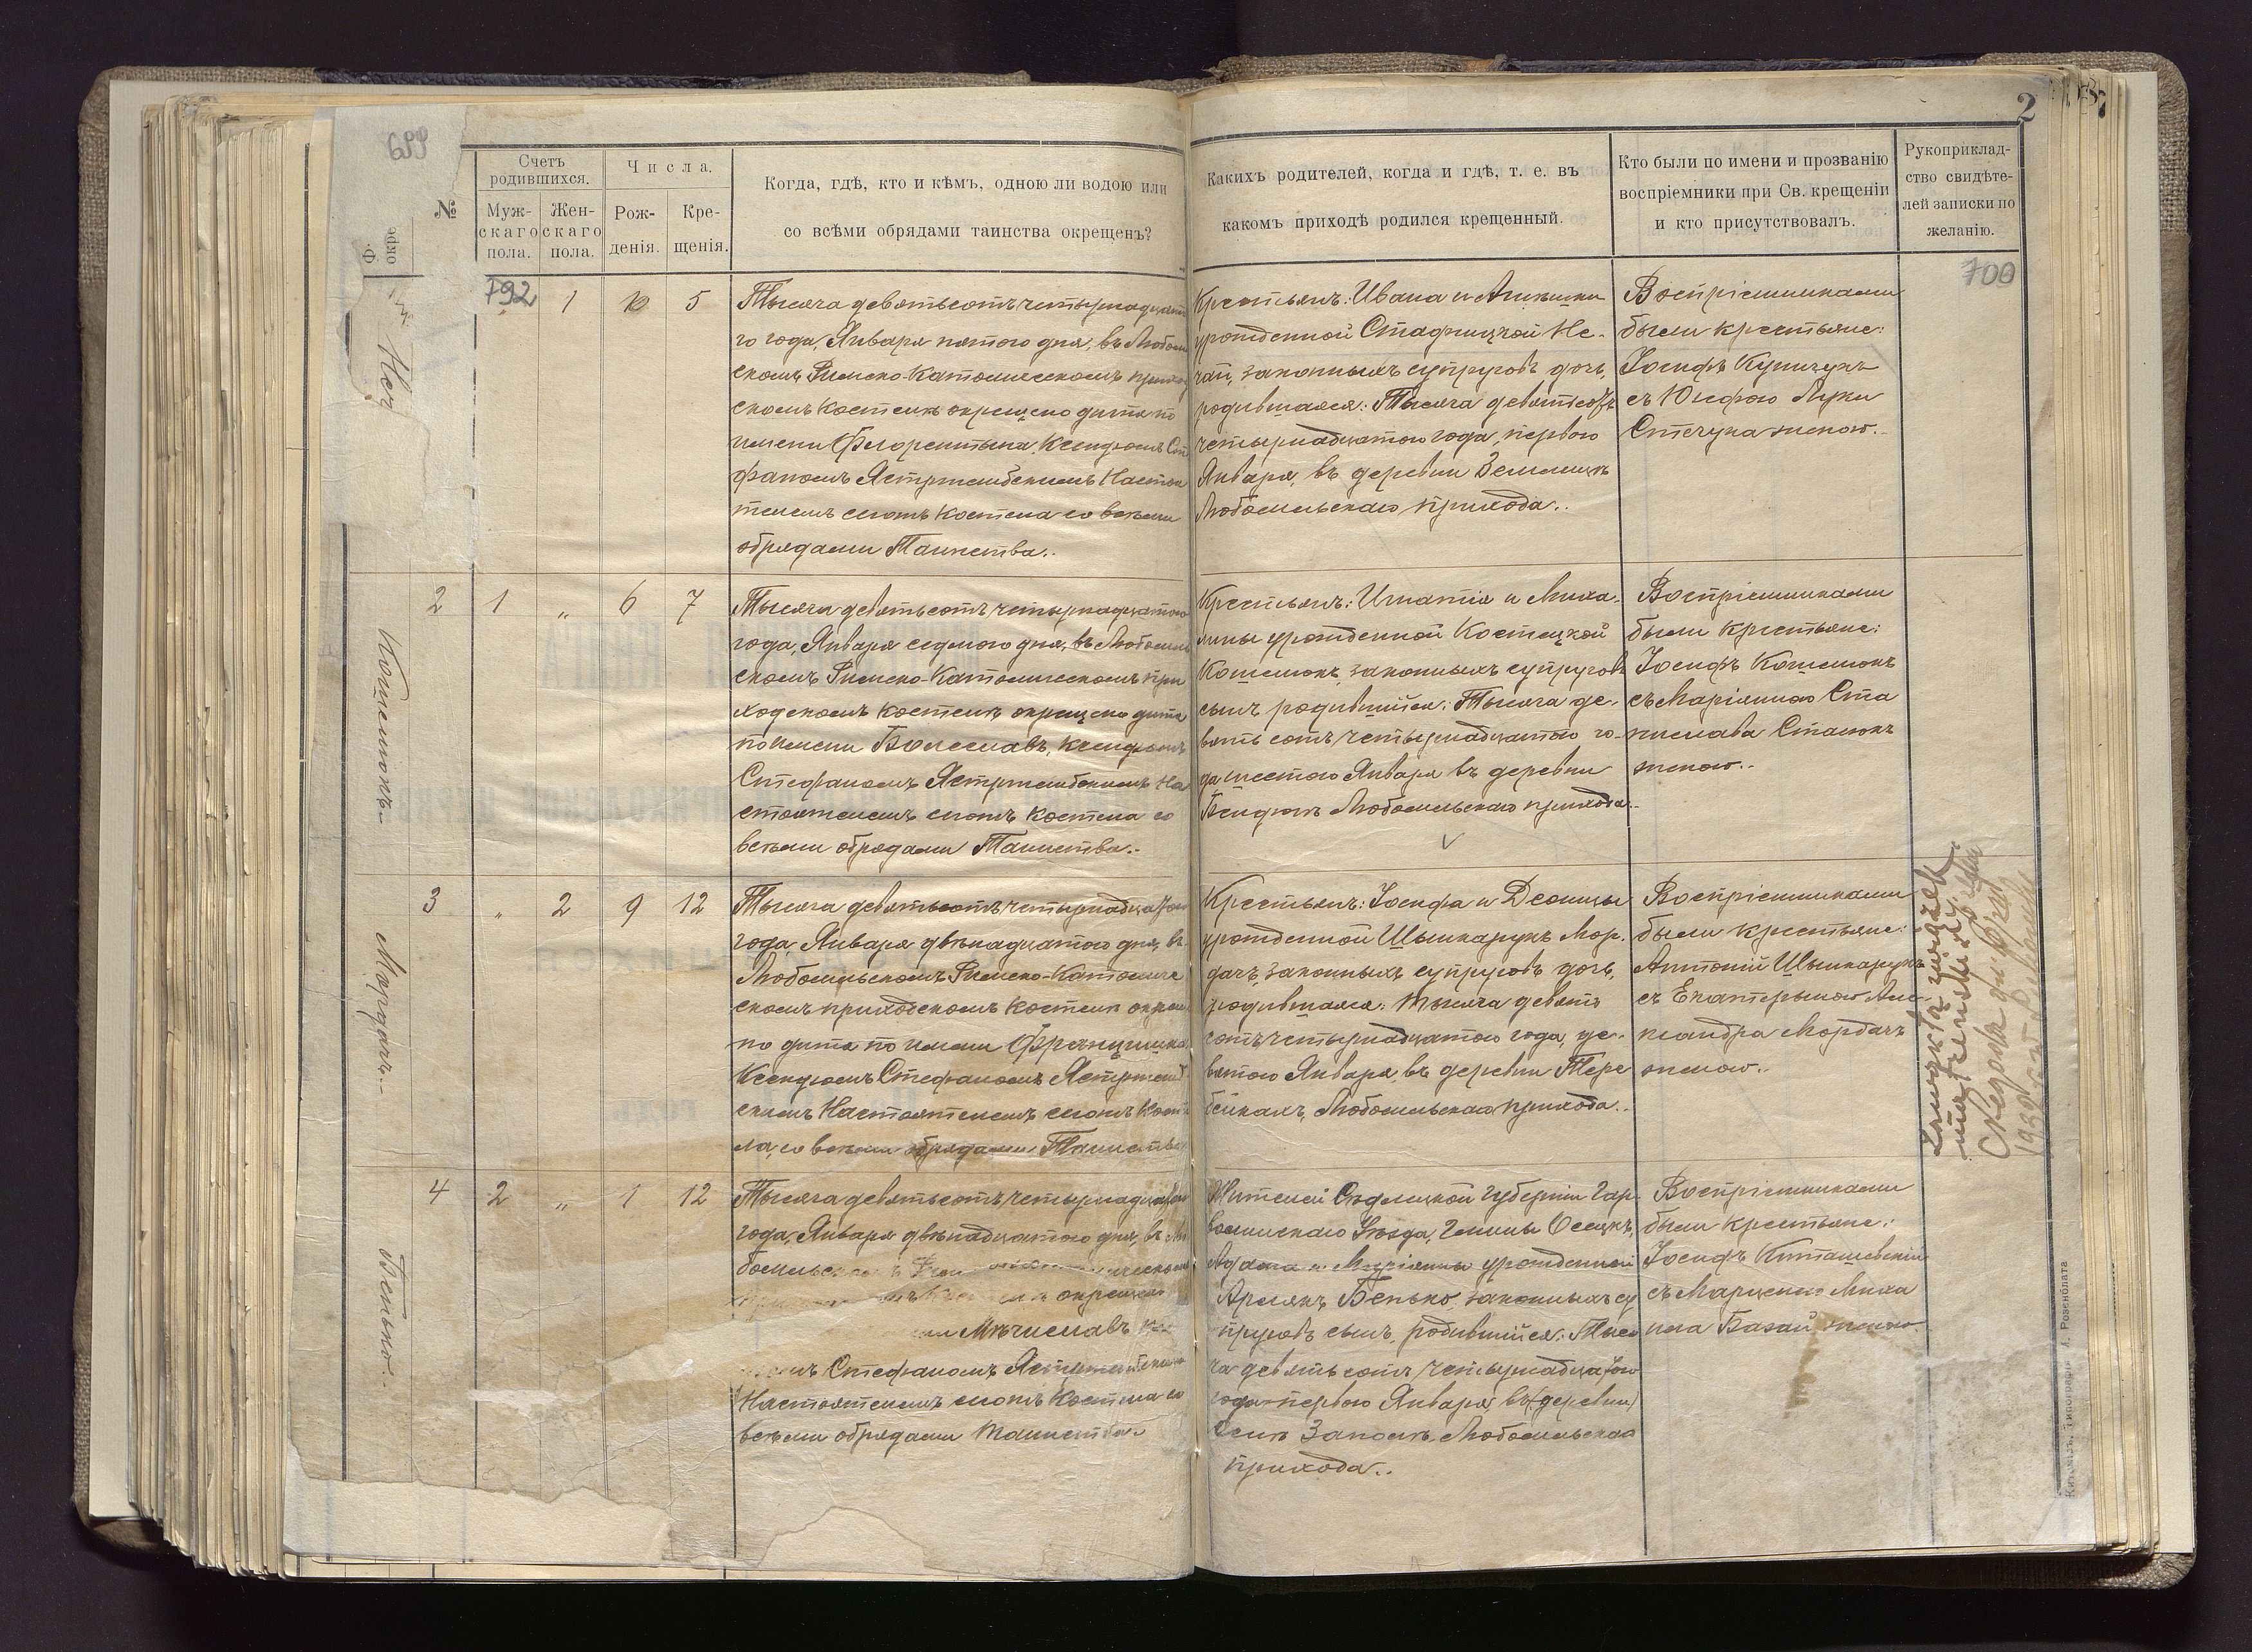 689
2
87
№
Счетъ
родившихся.
Муж-
скаго
пола.
Жен-
скаго
пола.
Числа.
Рож-
денія.
Кре-
щенія.
Когда, гдѣ, кто и кѣмъ, одною ли водою или
со всѣми обрядами таинства окрещенъ?
Какихъ родителей, когда и гдѣ, т. е. въ
какомъ приходѣ родился крещенный.
Кто были по имени и прозванію
воспріемники при Св. крещеніи
и кто присутствовалъ.
Рукоприклад-
ство свидѣте-
лей записки по
желанію.
Ф.
окре
792
700
Неч
1 5
Тысяча девятьсотъ четырнадцат
го года, Января пятого дня, въ Любомл
скомъ Римско-Католическомъ приход
скомъ костелѣ окрещено дитя по
имени Флорентына, Ксендзомъ Сте
фаномъ Ястржембскимъ Настоя
телемъ сиотъ костела со всѣми
обрядами Таинства..
Крестьянъ: Ивана и
урожденной Стафницкой Не-
чай, законныхъ супруговъ дочь,
родившаяся: Тысяча девятьсотъ
четырнадцатого года, первого
Января, въ деревни Землицѣ
Любомльскаго прихода..
Воспріемниками
были крестьяне:
Іосифъ Кушчукъ
съ Юзефою Луки
Стечука женою..
2 1 „ 6 7
Кошемонъ..
Тысяча девятьсотъ четырнадцатого
года, Января седмого дня, въ Любомль
скомъ Римско-Католическомъ при
ходскомъ костелѣ окрещено дитя
по имени Болеславъ, Ксендзомъ
Стефаномъ Ястржембскимъ На
стоятелемъ сиотъ костела со
всѣми обрядами Таинства..
Крестьянъ: Игнатія и Миха-
лины урожденной Костецкой
Кошемонъ, законныхъ супруговъ
сынъ, родившійся: Тысяча де-
вятьсотъ четырнадцатого го-
да, шестого Января въ деревни
Любомльскаго прихода..
Воспріемниками
были крестьяне:
Іосифъ Кошемонъ
съ Маріанною Ста
нислава Стасюкъ
женою..
3 „ 2 9 12
Мардачъ..
Тысяча девятьсотъ четырнадцатого
года, Января двѣнадцатого дня, въ
Любомльскомъ Римско-Католиче
скомъ приходскомъ костелѣ окреще
но дитя по имени Францишка
Ксендзомъ Стефаномъ Ястржемб
скимъ Настоятелемъ сиотъ косте
ла, со всѣми обрядами Таинства
Крестьянъ: Іосифа и Деонизы
урожденной Шышкарукъ Мор-
дачъ, законныхъ супруговъ дочь,
родившаяся: Тысяча девять
сотъ четырнадцатого года, де-
вятого Января, въ деревни Тере
бейкахъ, Любомльскаго прихода..
Воспріемниками
были крестьяне:
Антоній Шышкарукъ
съ Екатерыною Але-
ксандра Мордачъ
женою..
4 2 „ 1 12
Бенько..
Тысяча девятьсотъ четырнадцатого
года, Января двѣнадцатого дня, въ Лю
бомльск
окрещено
Мѣчиславъ
Стефаномъ Ястржембскимъ
Настоятелемъ сиотъ костела со
всѣми обрядами Таинства..
Жителей Сѣдлецкой губерніи Гар-
волинскаго Уѣзда, Гмины Осецкъ,
Адама и Маріанны урожденной
Бенько, законныхъ су
пруговъ сынъ, родившійся: Тыся
ча девятьсотъ четырнадцатого
года первого Января, въ (деревни)
селѣ Любомльскаго
прихода..
Воспріемниками
были крестьяне:
Іосифъ Киташевскій
съ Марцелою Миха
ила Базай женою.
Типографія М. Розенблата